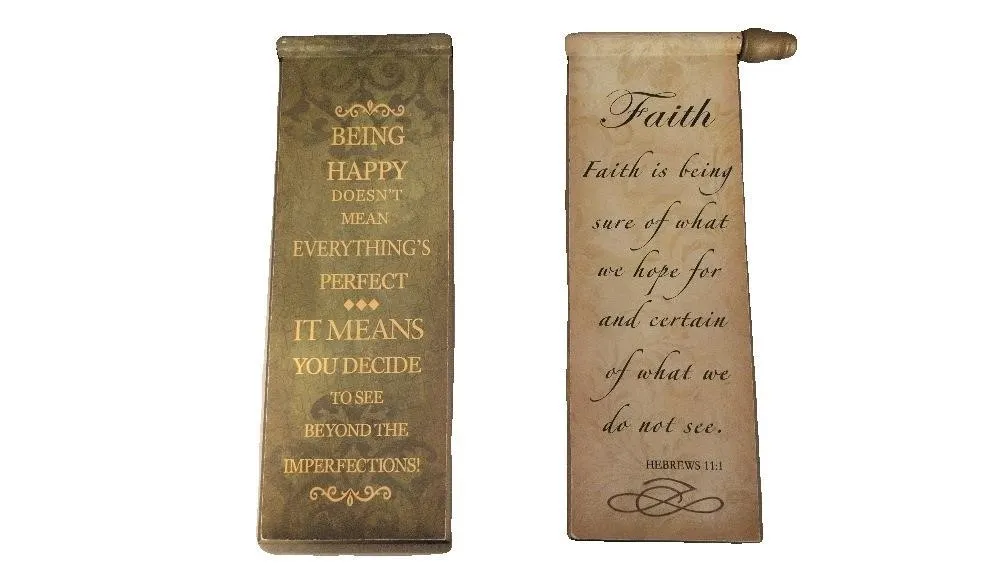 BEING
HAPPY
DOESN'T
MEAN
EVERYTHING'S
PERFECT
IT MEANS
YOU DECIDE
TO SEE
BEYOND THE
IMPERFECTIONS!
Faith
Faith is being
sure of what
we hope for
and certain
of what we
do not see.
HEBREWS 11:1